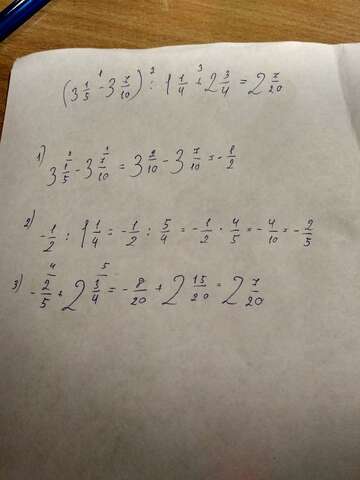 (3 1/5 - 3 7/10) : 1 1/4 + 2 3/4 = 2 7/20
1) 3 1/5 - 3 7/10 = 3 2/10 - 3 7/10 = - 1/2
2) - 1/2 : 1 1/4 = - 1/2 : 5/4 = - 1/2 · 4/5 = - 4/10 = - 2/5
3) - 2/5 + 2 3/4 = - 8/20 + 2 15/20 = 2 7/20